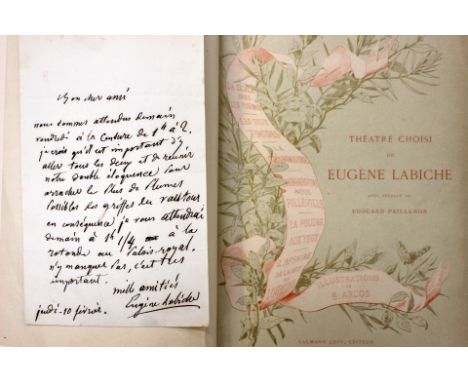 Mon cher ami
nous sommes attendus demain
vendredi à la Censure de 1h à 2.
je crois qu'il est important d'y
aller tous les deux et de réunir
notre double éloquence pour
arracher le plus de plumes
possibles des griffes du vautour
en conséquence je vous attendrai
demain à 1h 1/4 à la
rotonde au Palais-royal.
n'y manquez pas, c'est très
important.
mille amitiés
Eugène Labiche
jeudi - 10 février.
LES DEUX
TIMIDES
LA
GRAMMAIRE
LA POUDRE
AUX YEUX
ILLUSTRATIONS
DE
S. ARCOS
THÉATRE CHOISI
DE
EUGÈNE LABICHE
AVEC PRÉFACE DE
EDOUARD PAILLERON
CALMANN LÉVY, ÉDITEUR